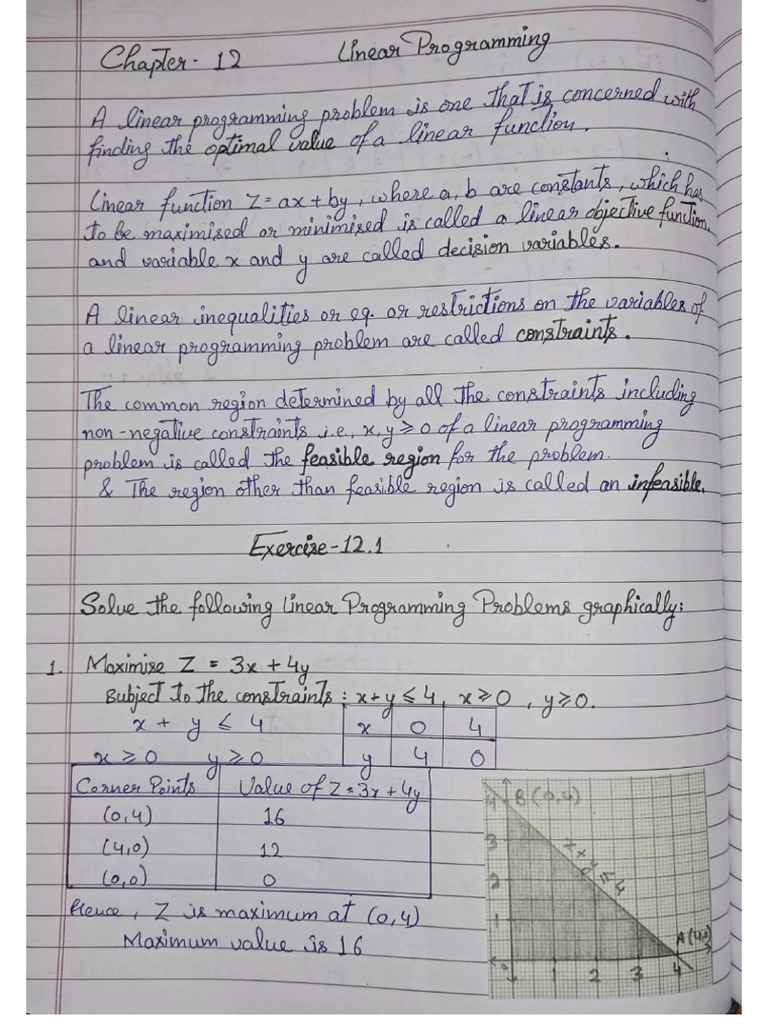 Chapter - 12 Linear Programming
A linear programming problem is one that is concerned with
finding the optimal value of a linear function.
Linear function Z = ax + by, where a, b are constants, which has
to be maximised or minimised is called a linear objective function.
and variable x and y are called decision variables.
A linear inequalities or eq. or restrictions on the variables of
a linear programming problem are called constraints.
The common region determined by all the constraints including
non-negative constraints i.e., x, y ≥ 0 of a linear programming
problem is called the feasible region for the problem.
& The region other than feasible region is called an infeasible.
Exercise - 12.1
Solve the following Linear Programming Problems graphically:
1. Maximise Z = 3x + 4y
Subject to the constraints : x+y ≤ 4, x ≥ 0, y ≥ 0.
x + y ≤ 4 x 0 4
x ≥ 0 y ≥ 0 y 4 0
Corner Points Value of Z = 3x + 4y
(0,4) 16
(4,0) 12
(0,0) 0
Hence, Z is maximum at (0,4)
Maximum value is 16
4 B(0,4)
3
x+y≤4
2
1
A(4,0)
0 1 2 3 4